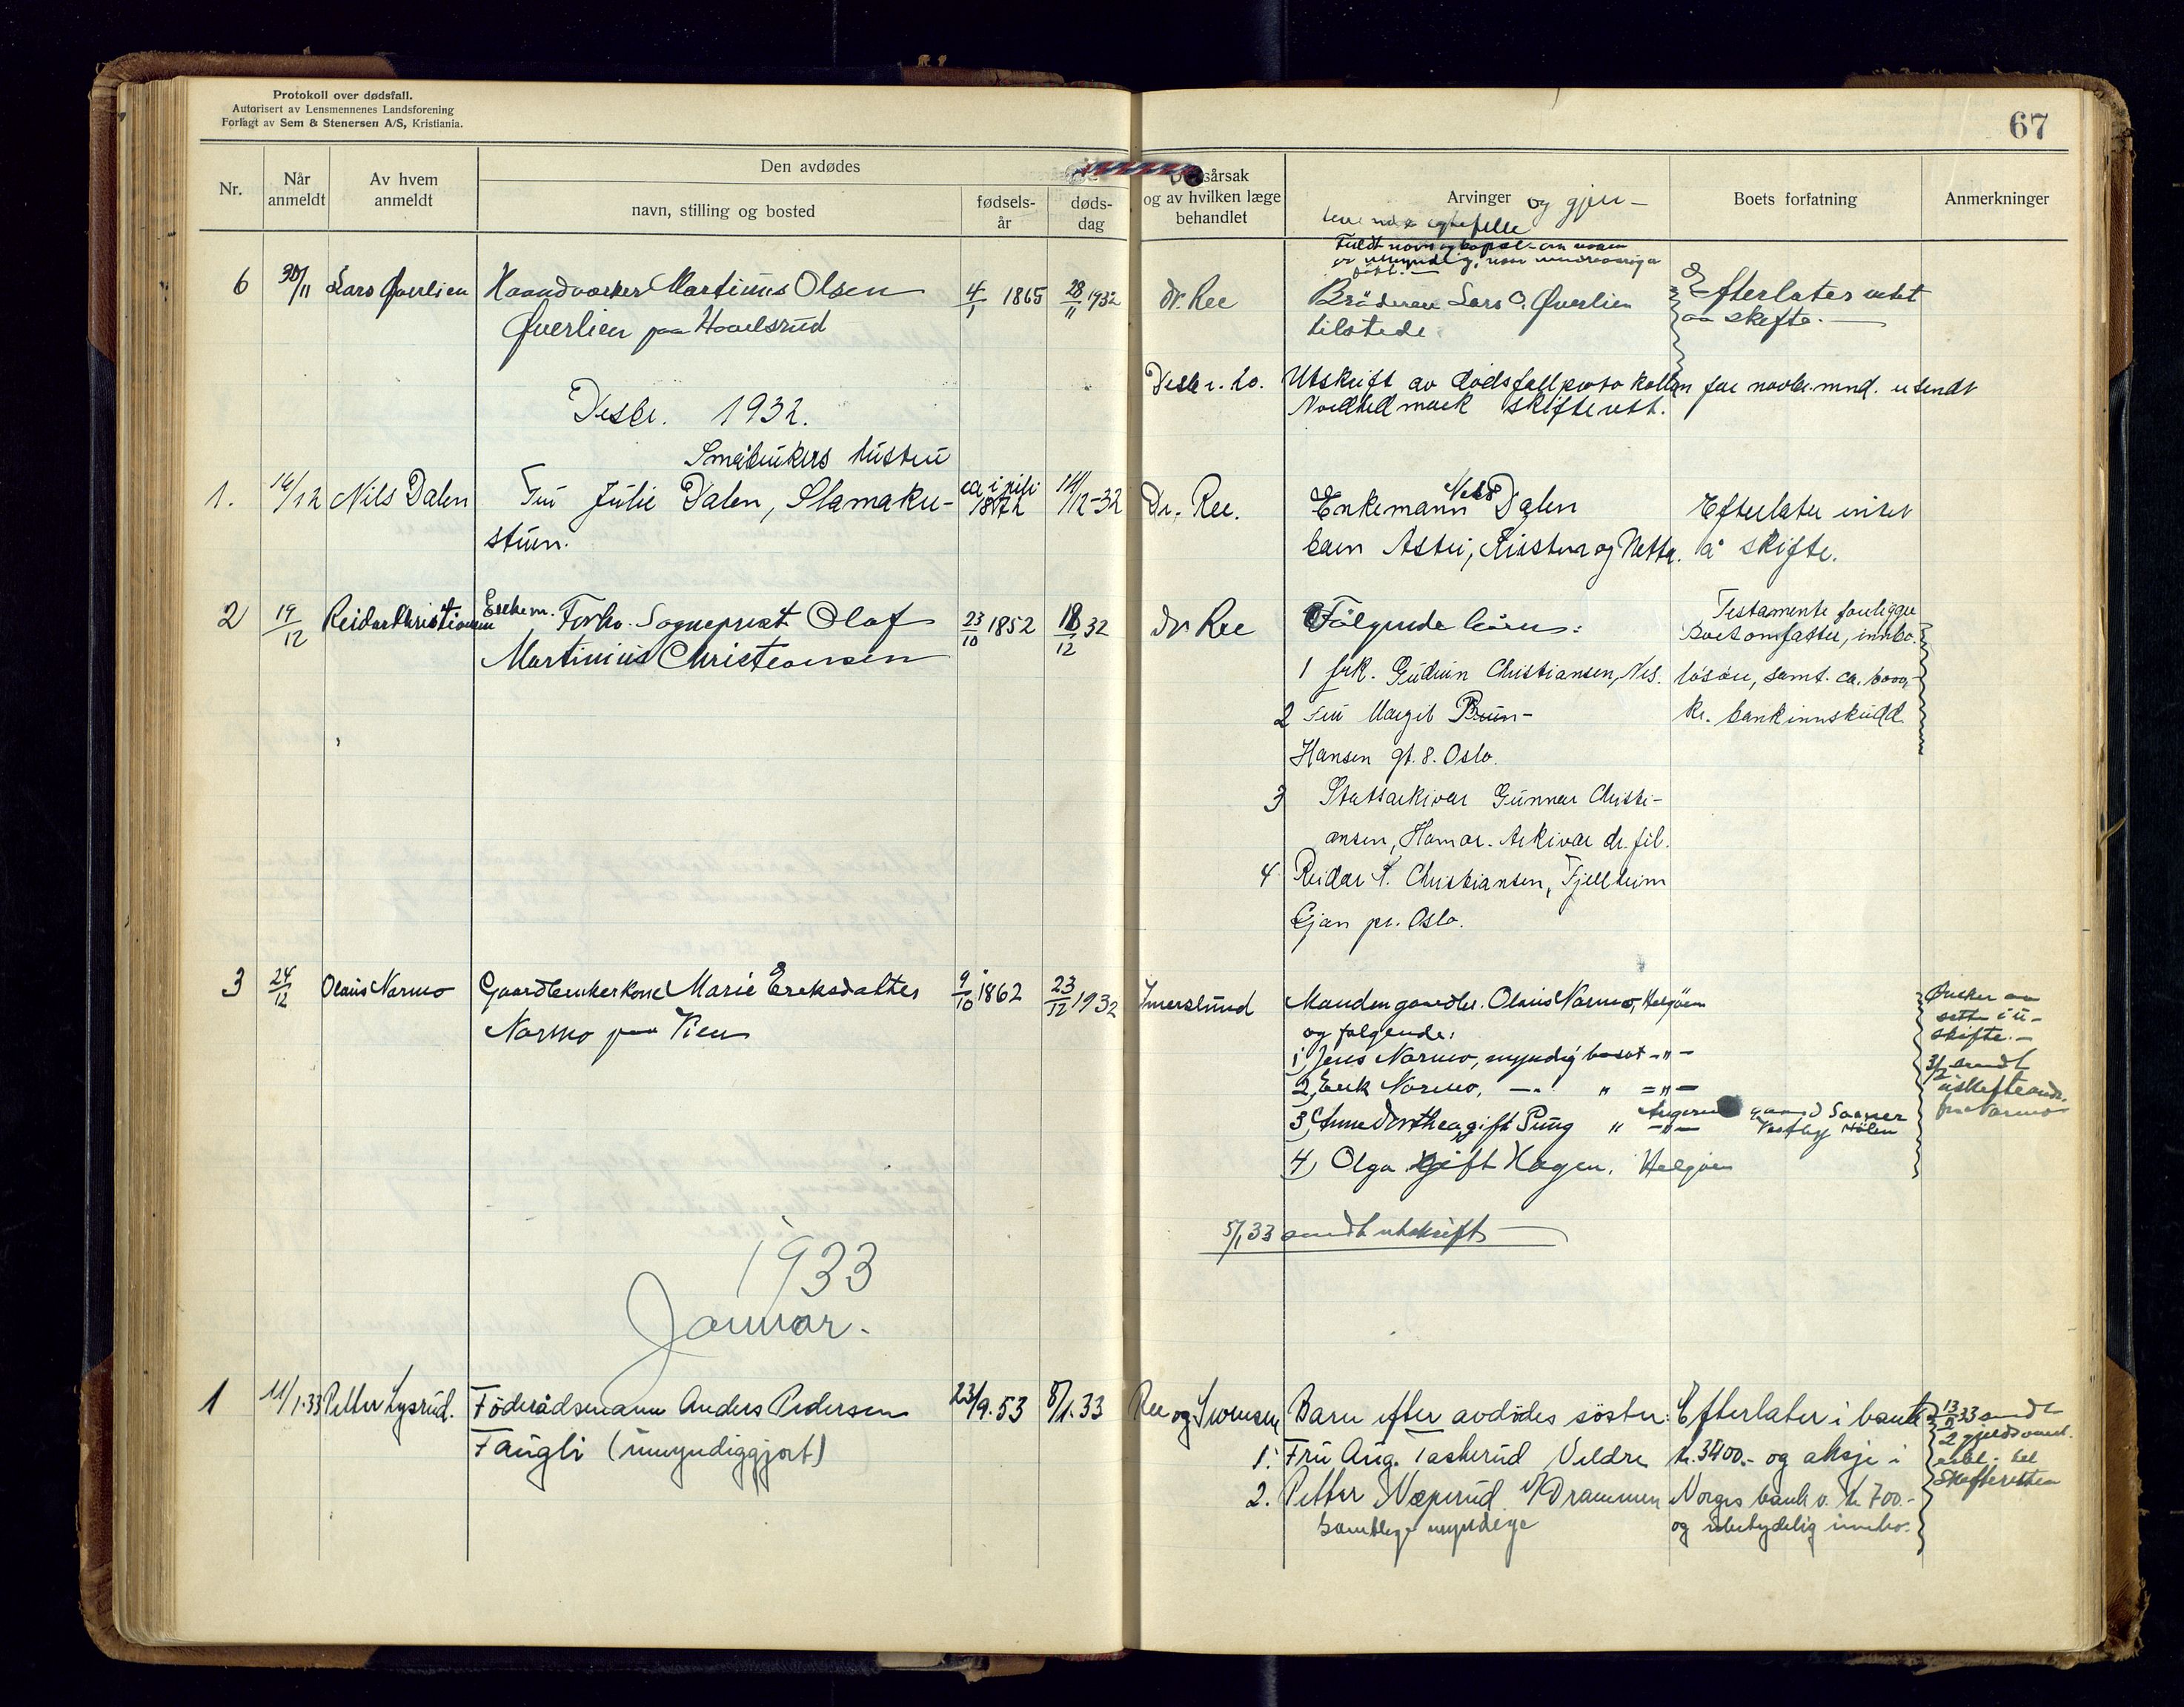 Protokoll over dødsfall.
Autorisert av Lensmennenes Landsforening
Forlagt av Sem & Stenersen A/S, Kristiania.
67
Nr.
Når anmeldt
Av hvem anmeldt
Den avdødes
navn, stilling og bosted
fødsels-år
døds-dag
og av hvilken læge behandlet
Arvinger og gjen-
levende egtefelle
Boets forfatning
Anmerkninger
6 30/11 Lars Øverlien Haandverker Martinius Olsen 4/1 1865 28/11 1932 dr. Ree Broderen Lars O. Øverlien Efterlater intet
Øverlien paa Hovelsrud tilstede aa skifte.
Desbr. 10. Utskrift av dødsfallprotokollen for novbr. mnd. utsendt
Nordhedmark skifterett.
Desbr. 1932.
Småbrukers hustru
1. 14/12 Nils Dalen Fru Julie Dalen, Slamaku- 14/12-32 Dr. Ree. Enkemann Nils Dalen Efterlater intet
stuen. barn Astri, Kristine og Netta. å skifte.
2 19/12 Reidar Christiansen Enkem. Forhv. Sogneprest Olaf 23/10 1852 18/12 32 dr Ree Følgende barn: Testamente foreligger
Martinius Christiansen Boet omfatter, innbo.
1 frk. Gudrun Christiansen, Nes. løsøre, samt. ca. 6000,-
2 Fru Margit Bruun- kr. bankinnskudd.
Hansen gt. 8. Oslo.
3 Statsarkivar Gunnar Christi-
ansen, Hamar. Arkivar dr. fil.
4 Reidar T. Christiansen, Fjellheim
Gjan pr. Oslo.
3 24/12 Olaus Narmo Gaardbrukerkone Marie Eriksdatter 9/10 1862 23/12 1932 Imerslund Manden gaardbr. Olaus Narmo, Helgøen Ønsker aa
Narmo paa Vien sitte i u-
og følgende: skifte.-
1) Jens Narmo, myndig bosat -"-
2, Erik Narmo, -"- " ="-
3, Anne Dorthea, gift Pung " -"- gaard Saaner
Vestby Hølen
4) Olga gift Hagen. Helgøen
5/1 33 sendt utskrift
1933
Januar.
1 11/1.33 Petter Lysrud. Føderådsmann Anders Pedersen 23/9.53 8/1.33 Ree og Sørensen Barn efter avdødes søster: Efterlater i bank 13/ 33 sendt
Faugli (umyndiggjort) 1. Fru Aug. Taskerud Veldre kr. 3400.- og aksje i
2. Petter Næperud Drammen Norges bank v. kr 700.- Skifteretten
samtlige myndige og ubetydelig innbo.